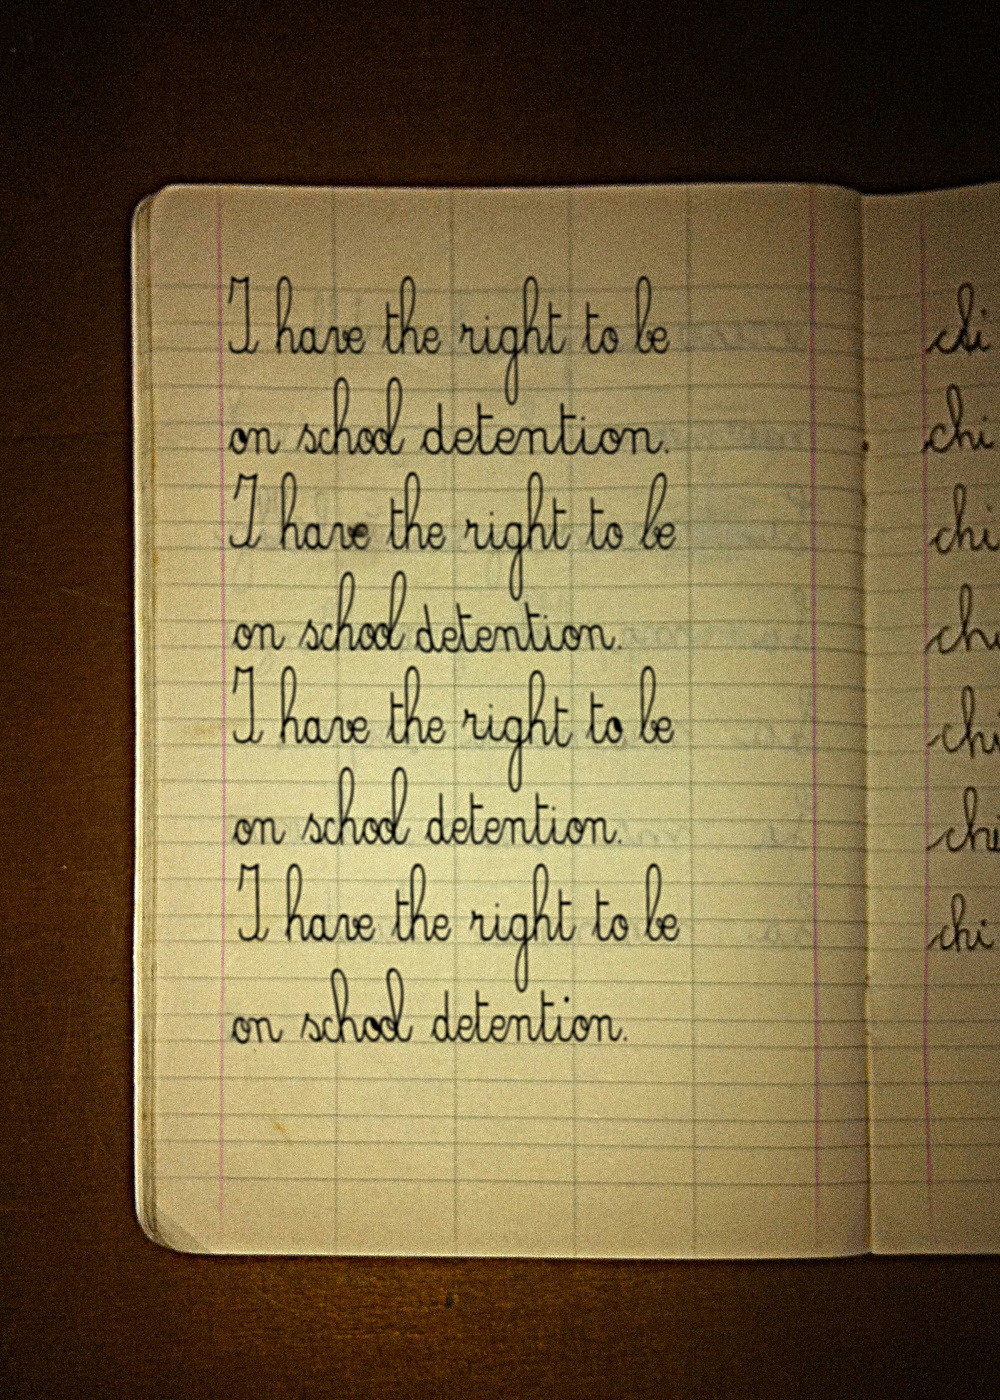 I have the right to be
on school detention.
I have the right to be
on school detention.
I have the right to be
on school detention.
I have the right to be
on school detention.
chi
chi
chi
chi